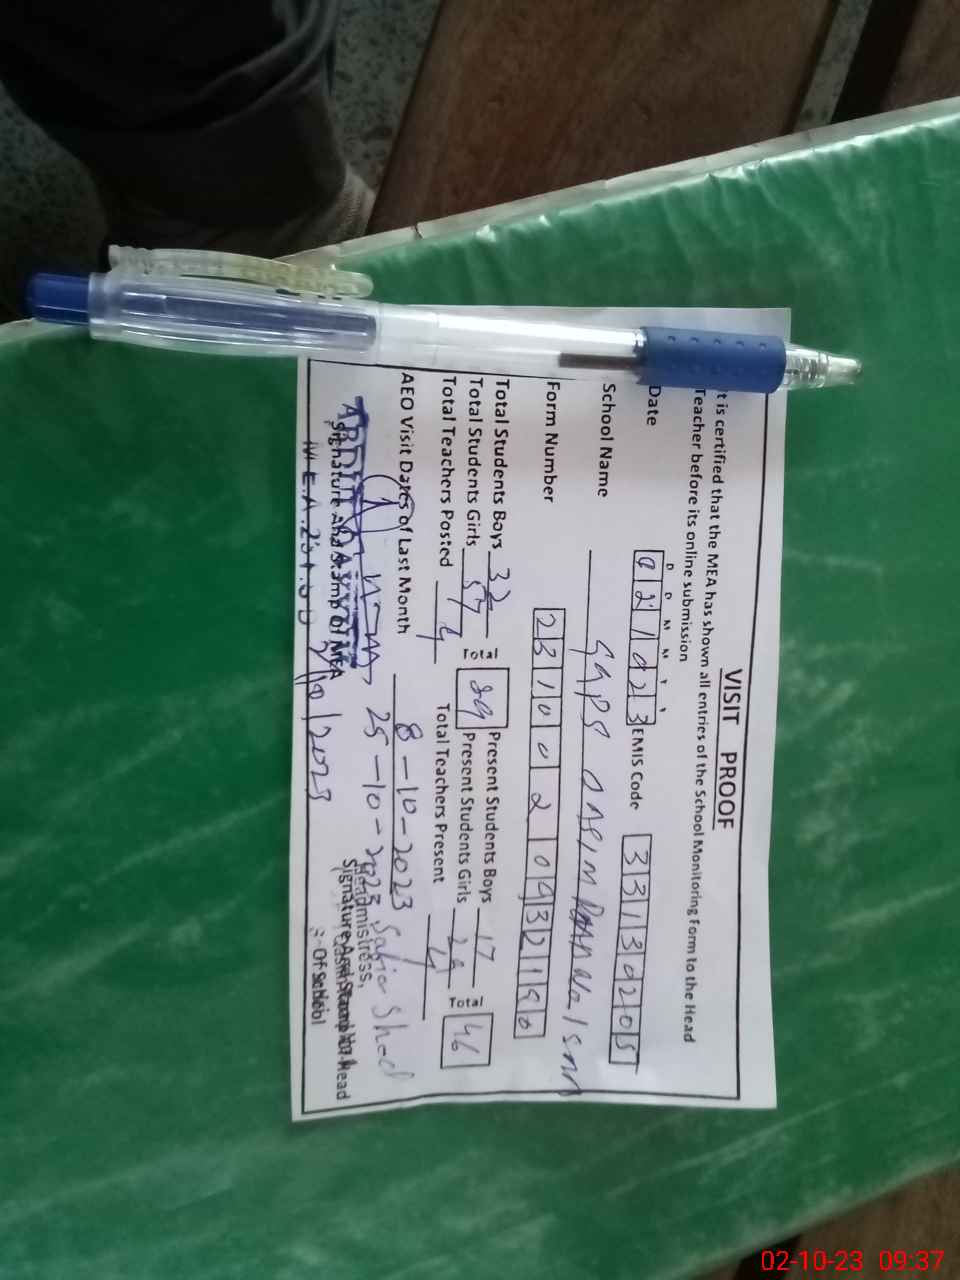 VISIT PROOF
t is certified that the MEA has shown all entries of the School Monitoring Form to the Head
Teacher before its online submission
D D M M Y Y
Date 021023 EMIS Code 33130205
School Name GGPS
Form Number 2310022093219 0
Total Students Boys 32 Total 89 Present Students Boys 17 Total 46
Total Students Girls 57 Present Students Girls 29
Total Teachers Posted 4 Total Teachers Present 4
AEO Visit Dates of Last Month 8-10-2023
25-10-2023
Signature And Stamp of MEA
Headmistress,
Signature And Stamp Head
Of School
M.E.A. 2/10/2023
02-10-23 09:37